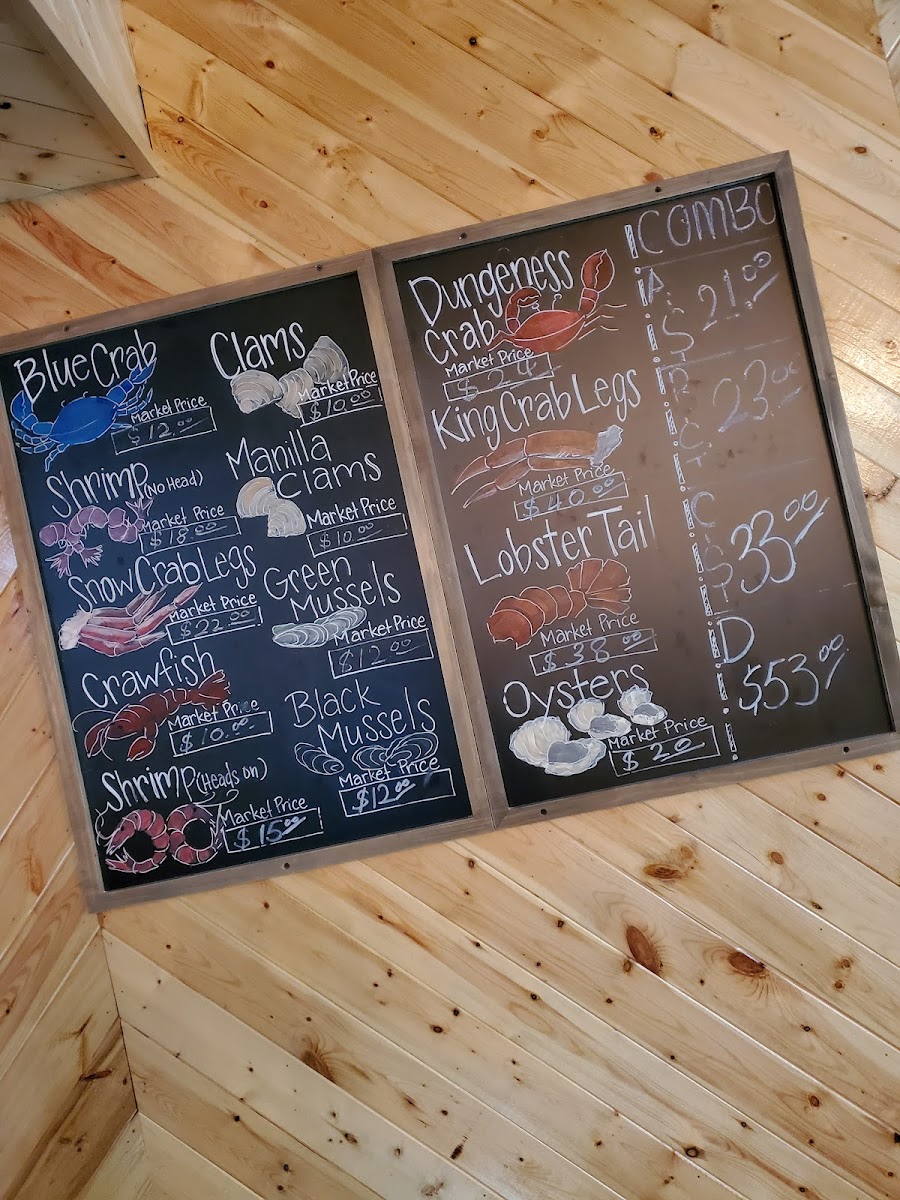 Blue Crab
Market Price
$12.00
Shrimp (No Head)
Market Price
$18.00
Snow Crab Legs
Market Price
$22.00
Crawfish
Market Price
$10.00
Shrimp (Heads on)
Market Price
$15.00
Clams
Market Price
$10.00
Manilla
Clams
Market Price
$10.00
Green
Mussels
Market Price
$12.00
Black
Mussels
Market Price
$12.00
Dungeness
Crab
Market Price
$24
King Crab Legs
Market Price
$40.00
Lobster Tail
Market Price
$38.00
Oysters
Market Price
$20
COMBO
A
$21.00
23.00
C
$33.00
D
$53.00